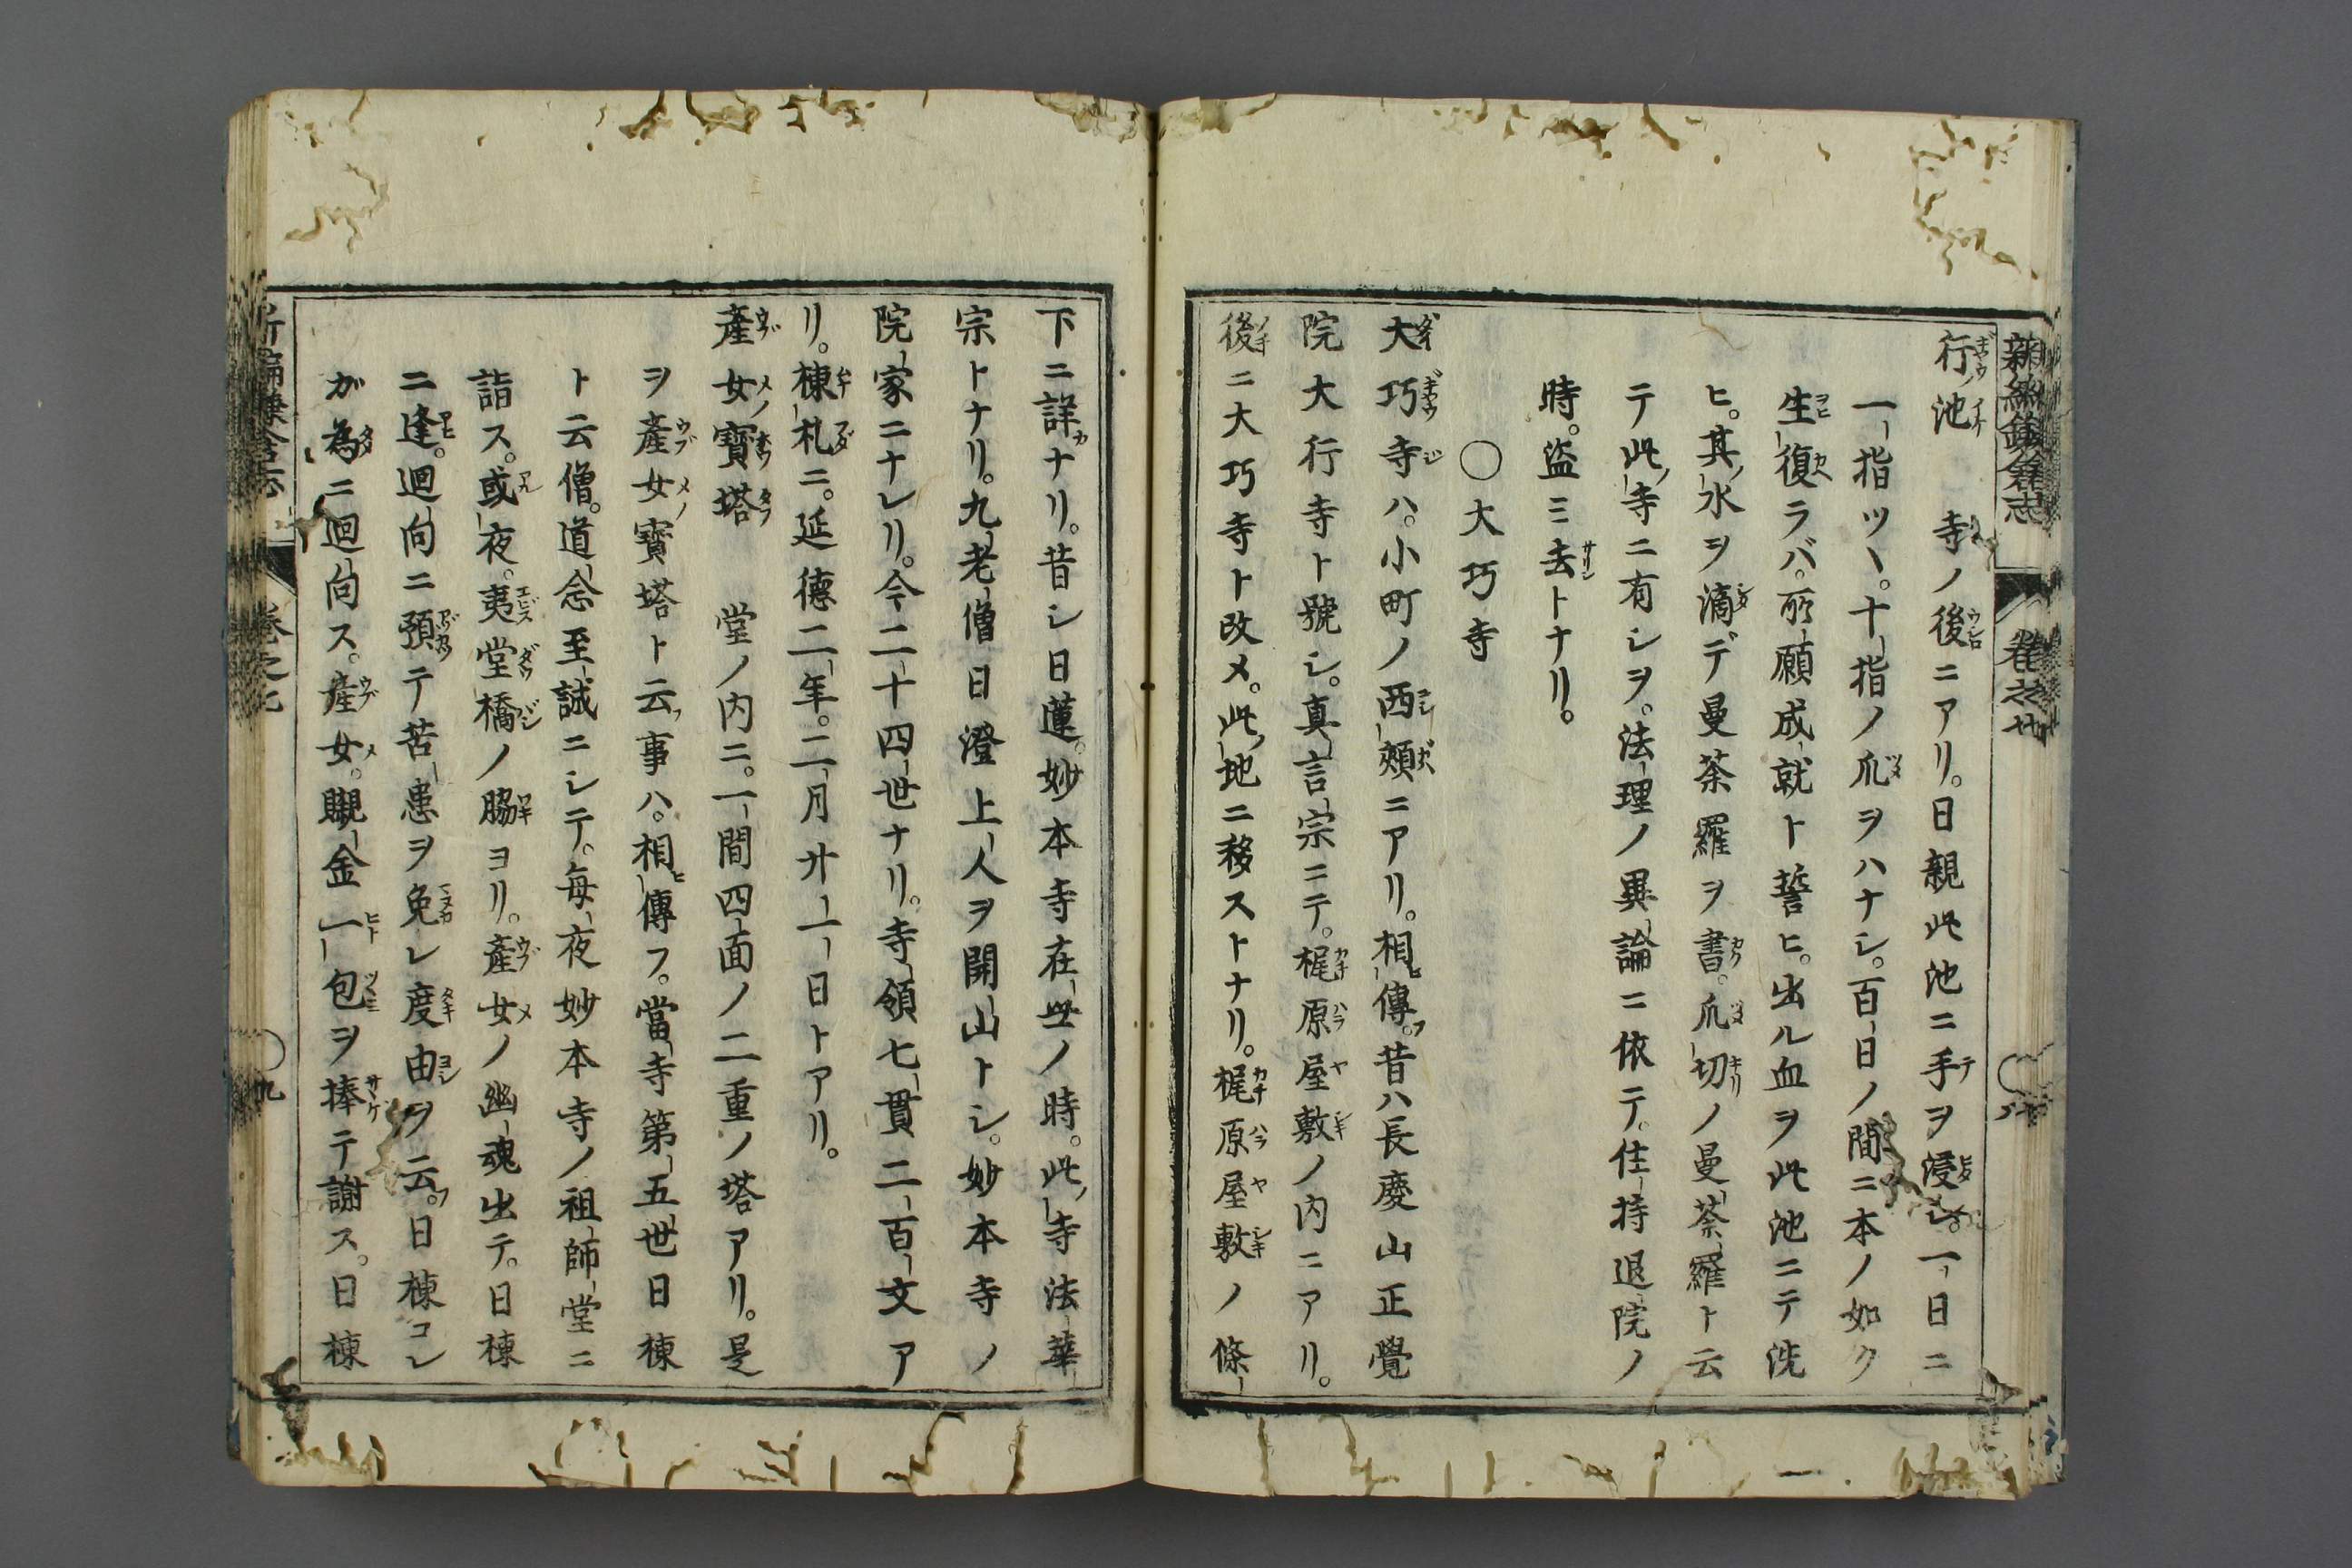 新編鎌倉志　卷之七
行ノ池　寺ノ後ニアリ。日親此池ニ手ヲ浸シ。一日ニ
一指ツヽ。十指ノ爪ヲハナシ。百日ノ間ニ本ノ如ク
生復ラバ。所願成就ト誓ヒ。出ル血ヲ此池ニテ洗
ヒ。其水ヲ滴デ曼荼羅ヲ書。爪切ノ曼荼羅ト云
テ此寺ニ有シヲ。法理ノ異論ニ依テ。住持退院ノ
時。盜ミ去トナリ。
〇大巧寺
大巧寺ハ。小町ノ西頰ニアリ。相傳フ。昔ハ長慶山正覺
院大行寺ト號シ。真言宗ニテ。梶原屋敷ノ内ニアリ。
後ニ大巧寺ト改メ。此地ニ移ストナリ。梶原屋敷ノ條
下ニ詳ナリ。昔シ日蓮。妙本寺在世ノ時。此寺法華
宗トナリ。九老僧日澄上人ヲ開山トシ。妙本寺ノ
院家ニナレリ。今二十四世ナリ。寺領七貫二百文ア
リ。棟札ニ。延德二年。二月廾一日トアリ。
產女寶塔　堂ノ内ニ。一間四面ノ二重ノ塔アリ。是
ヲ產女寶塔ト云フ事ハ。相傳フ。當寺第五世日棟
ト云僧。道念至誠ニシテ。每夜妙本寺ノ祖師堂ニ
詣ス。或夜。夷堂橋ノ脇ヨリ。產女ノ幽魂出テ。日棟
ニ逢。迴向ニ預テ苦患ヲ免レ度由ヲ云フ。日棟コレ
ガ為ニ迴向ス。產女。䞋金一包ヲ捧テ謝ス。日棟
新編鎌倉志　卷之七　〇九